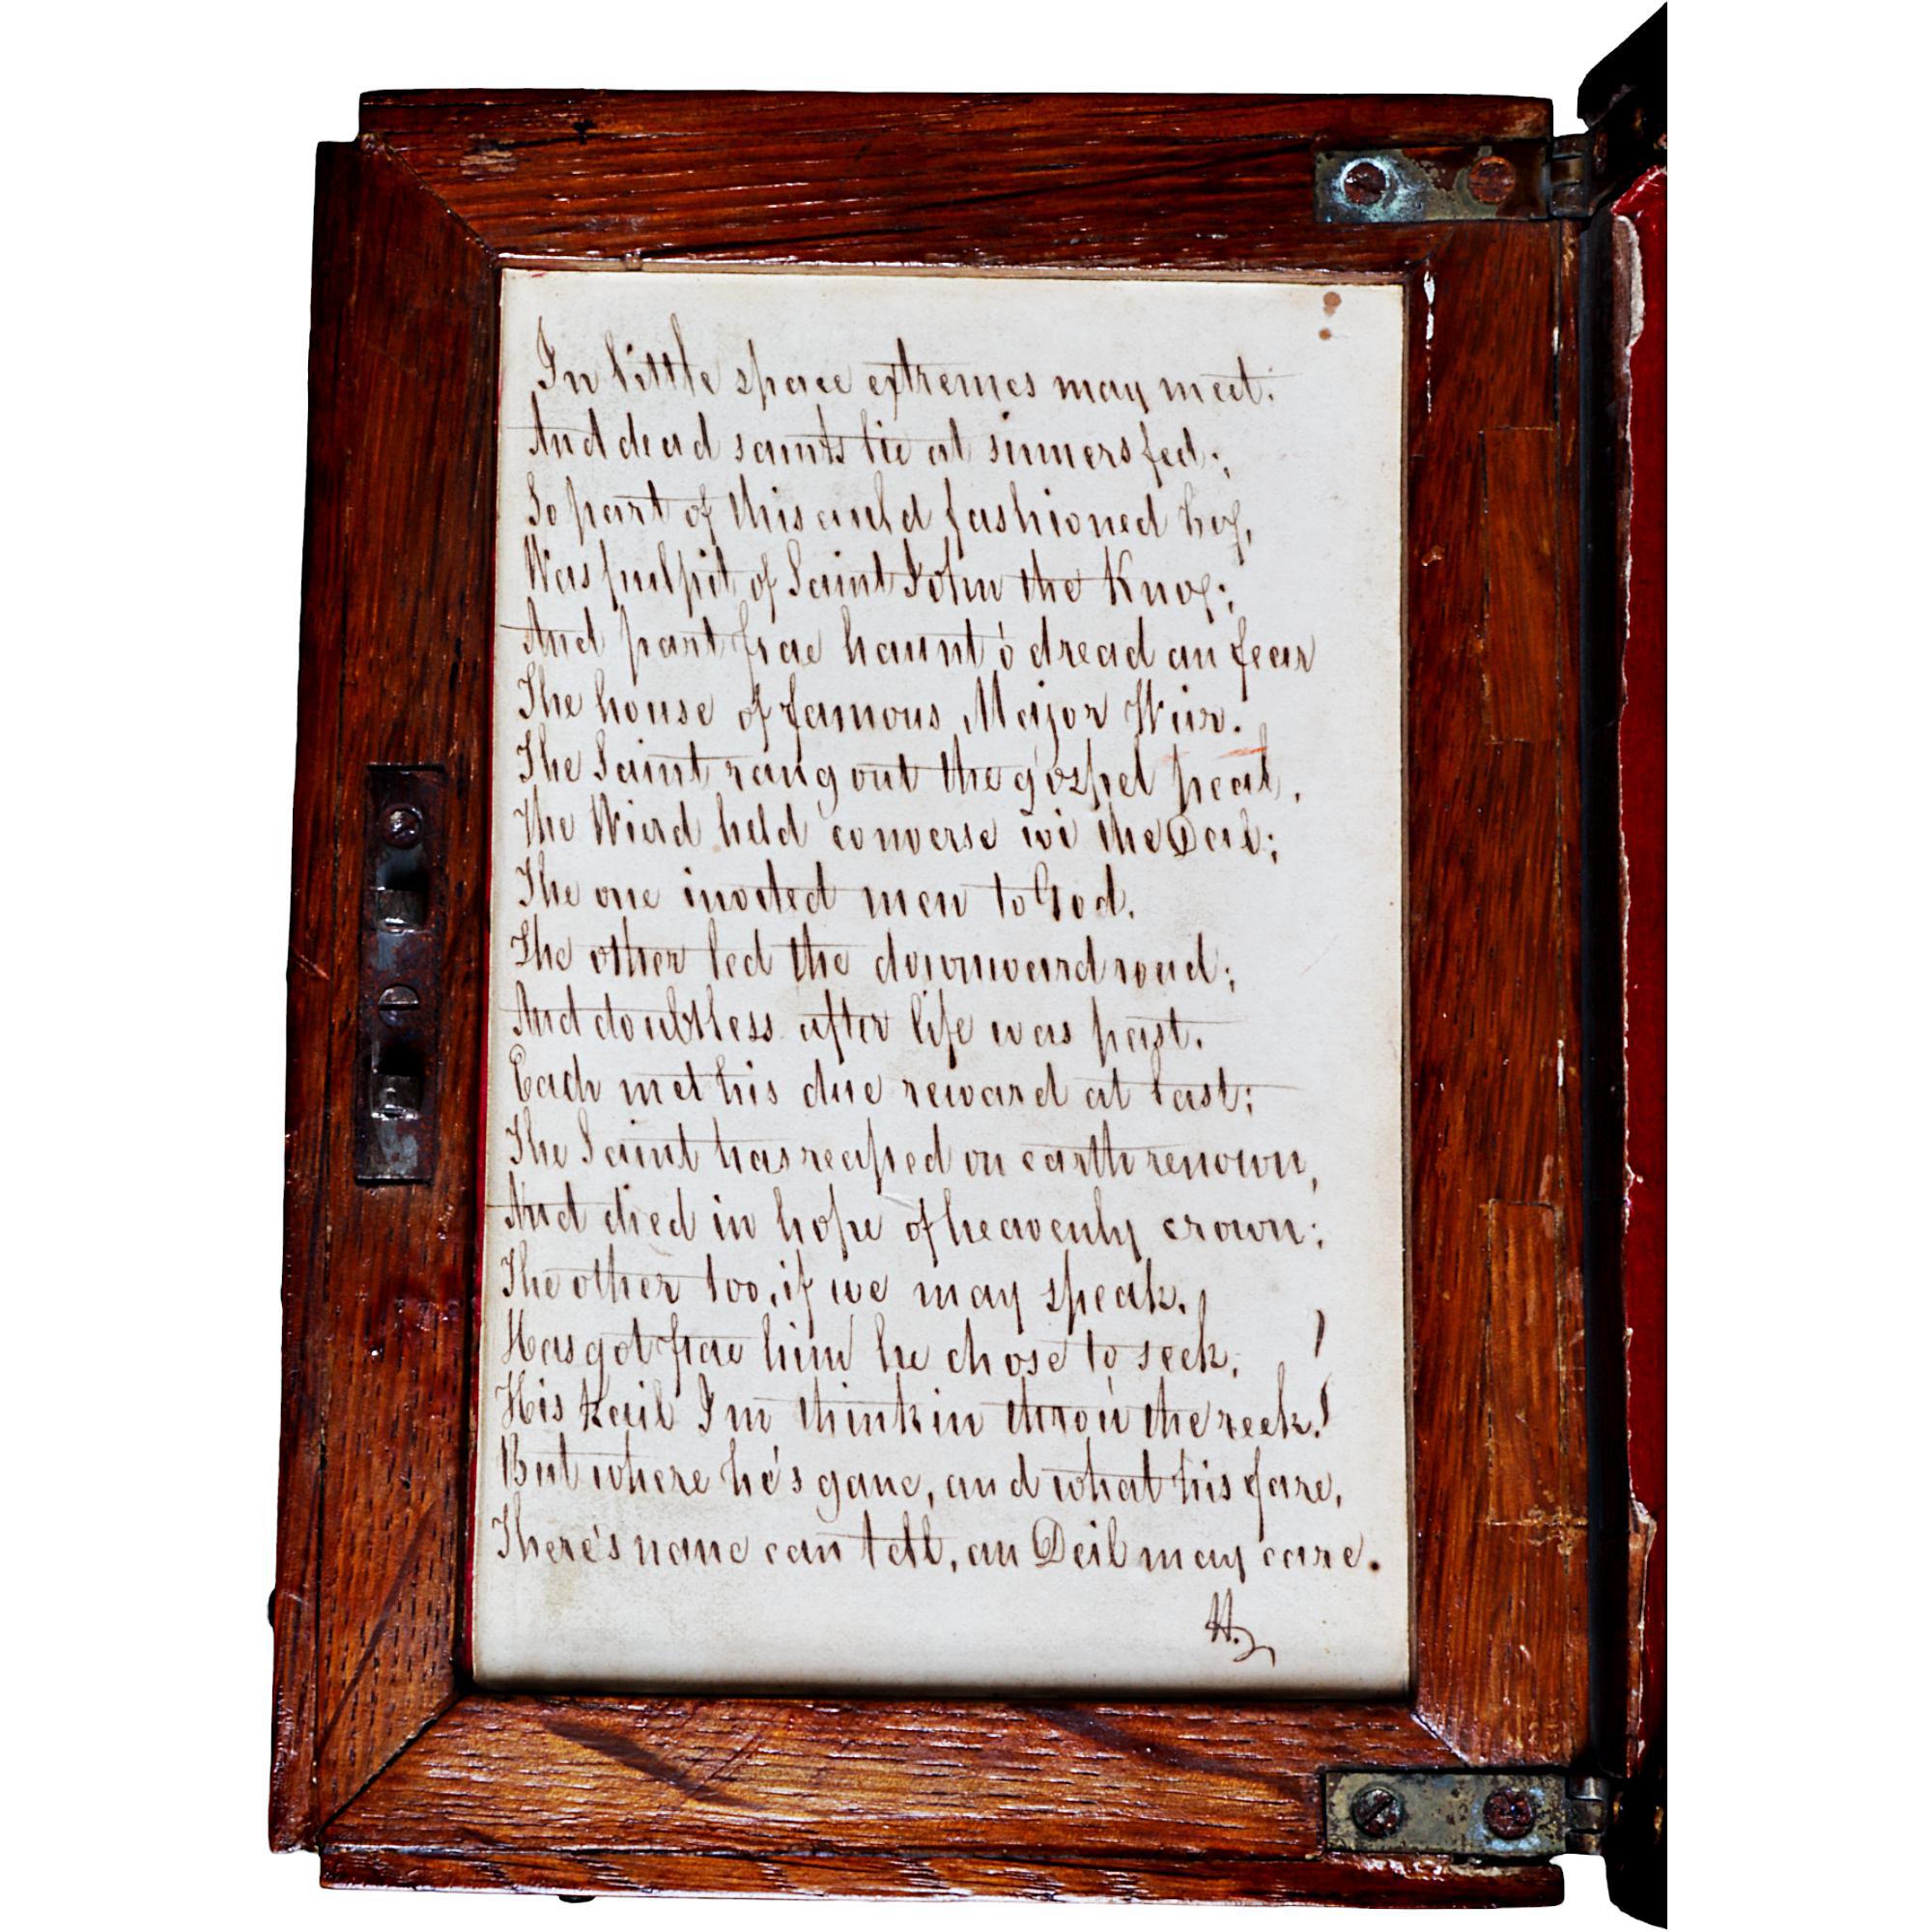 In little space extremes may meet:
And dead saints lie at sinners feet;
So part of this auld fashioned box,
Was pulpit of Saint John the Knox;
And part frae haunt o' dread an fear
The house of famous Major Weir.
The Saint rang out the gospel peal,
The Wierd held converse wi the Deil;
The one invited men to God,
The other led the downward road;
And doubtless after life was past,
Each met his due reward at last;
The Saint has reaped on earth renown,
And died in hope of heavenly crown;
The other too, if we may speak,
Has got frae him he chose to seek,
His kail I'm thinkin thro'u the reek!
But where he's gane, and what his fare,
There's nane can tell, an Deil may care.
H.